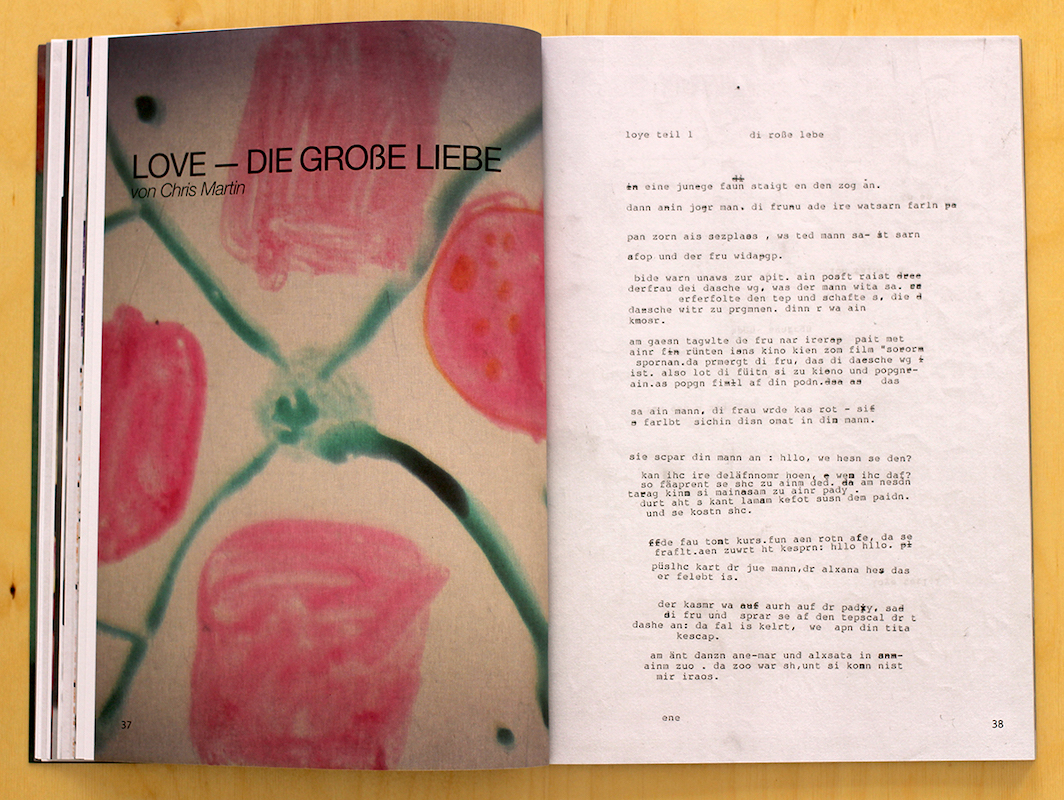 LOVE – DIE GROßE LIEBE
von Chris Martin
37
loye teil 1 di roße lebe
eine junege faun staigt en den zog an.
dann anin jogr man. di frunu ade ire watsarn farln
pan zorn ais sezplaes , ws ted mann sa- st sarn
afop und der fru widapgp.
bide warn unaws zur apit. ain posft raist
derfrau dei dasche wg, was der mann wita sa.
erferfolte den tep und schafte s, die
daesche witr zu prgmnen. dinn r wa ain
kmosr.
am gaesn tagwlte de fru nar irerap pait met
ainr rünten iens kino kien zom film "sororm
spornan.da prmergt di fru, das di daesche wg
ist. also lot di füitn si zu kieno und popgnr-
ain.as popgn fimil af din podn. das
sa ain mann, di frau wrde kas rot - sif
farlbt sichin disn omat in dim mann.
sie scpar din mann an : hllo, we hesn se den?
kan ihc ire deläfnnomr hoen, wem ihc daf?
so fäaprent se shc zu ainm ded. am nesdn
tarag kinm si mainasam zu ainr pady .
durt aht s kant lamam kefot susn dem paidn.
und se kostn shc.
de fau tomt kurs.fun aen rotn afe, da se
fraflt.aen zuwrt ht kesprn: hllo hllo.
püslhc kart dr jue mann,dr alxana hes das
er felebt is.
der kasmr wa aurh auf dr padxy, sad
di fru und sprar se af den tepscal dr t
dashe an: da fal is kelrt, we apn din tita
kescap.
am änt danzn ane-mar und alxsata in
ainm zuo . da zoo war sh,unt si komn nist
mir iraos.
ene
38